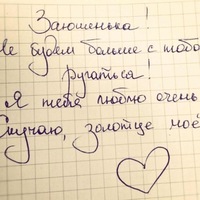 Заюшенька!
Не будем больше с тобо
ругаться!
Я тебя люблю очень
Скучаю, золотце моё